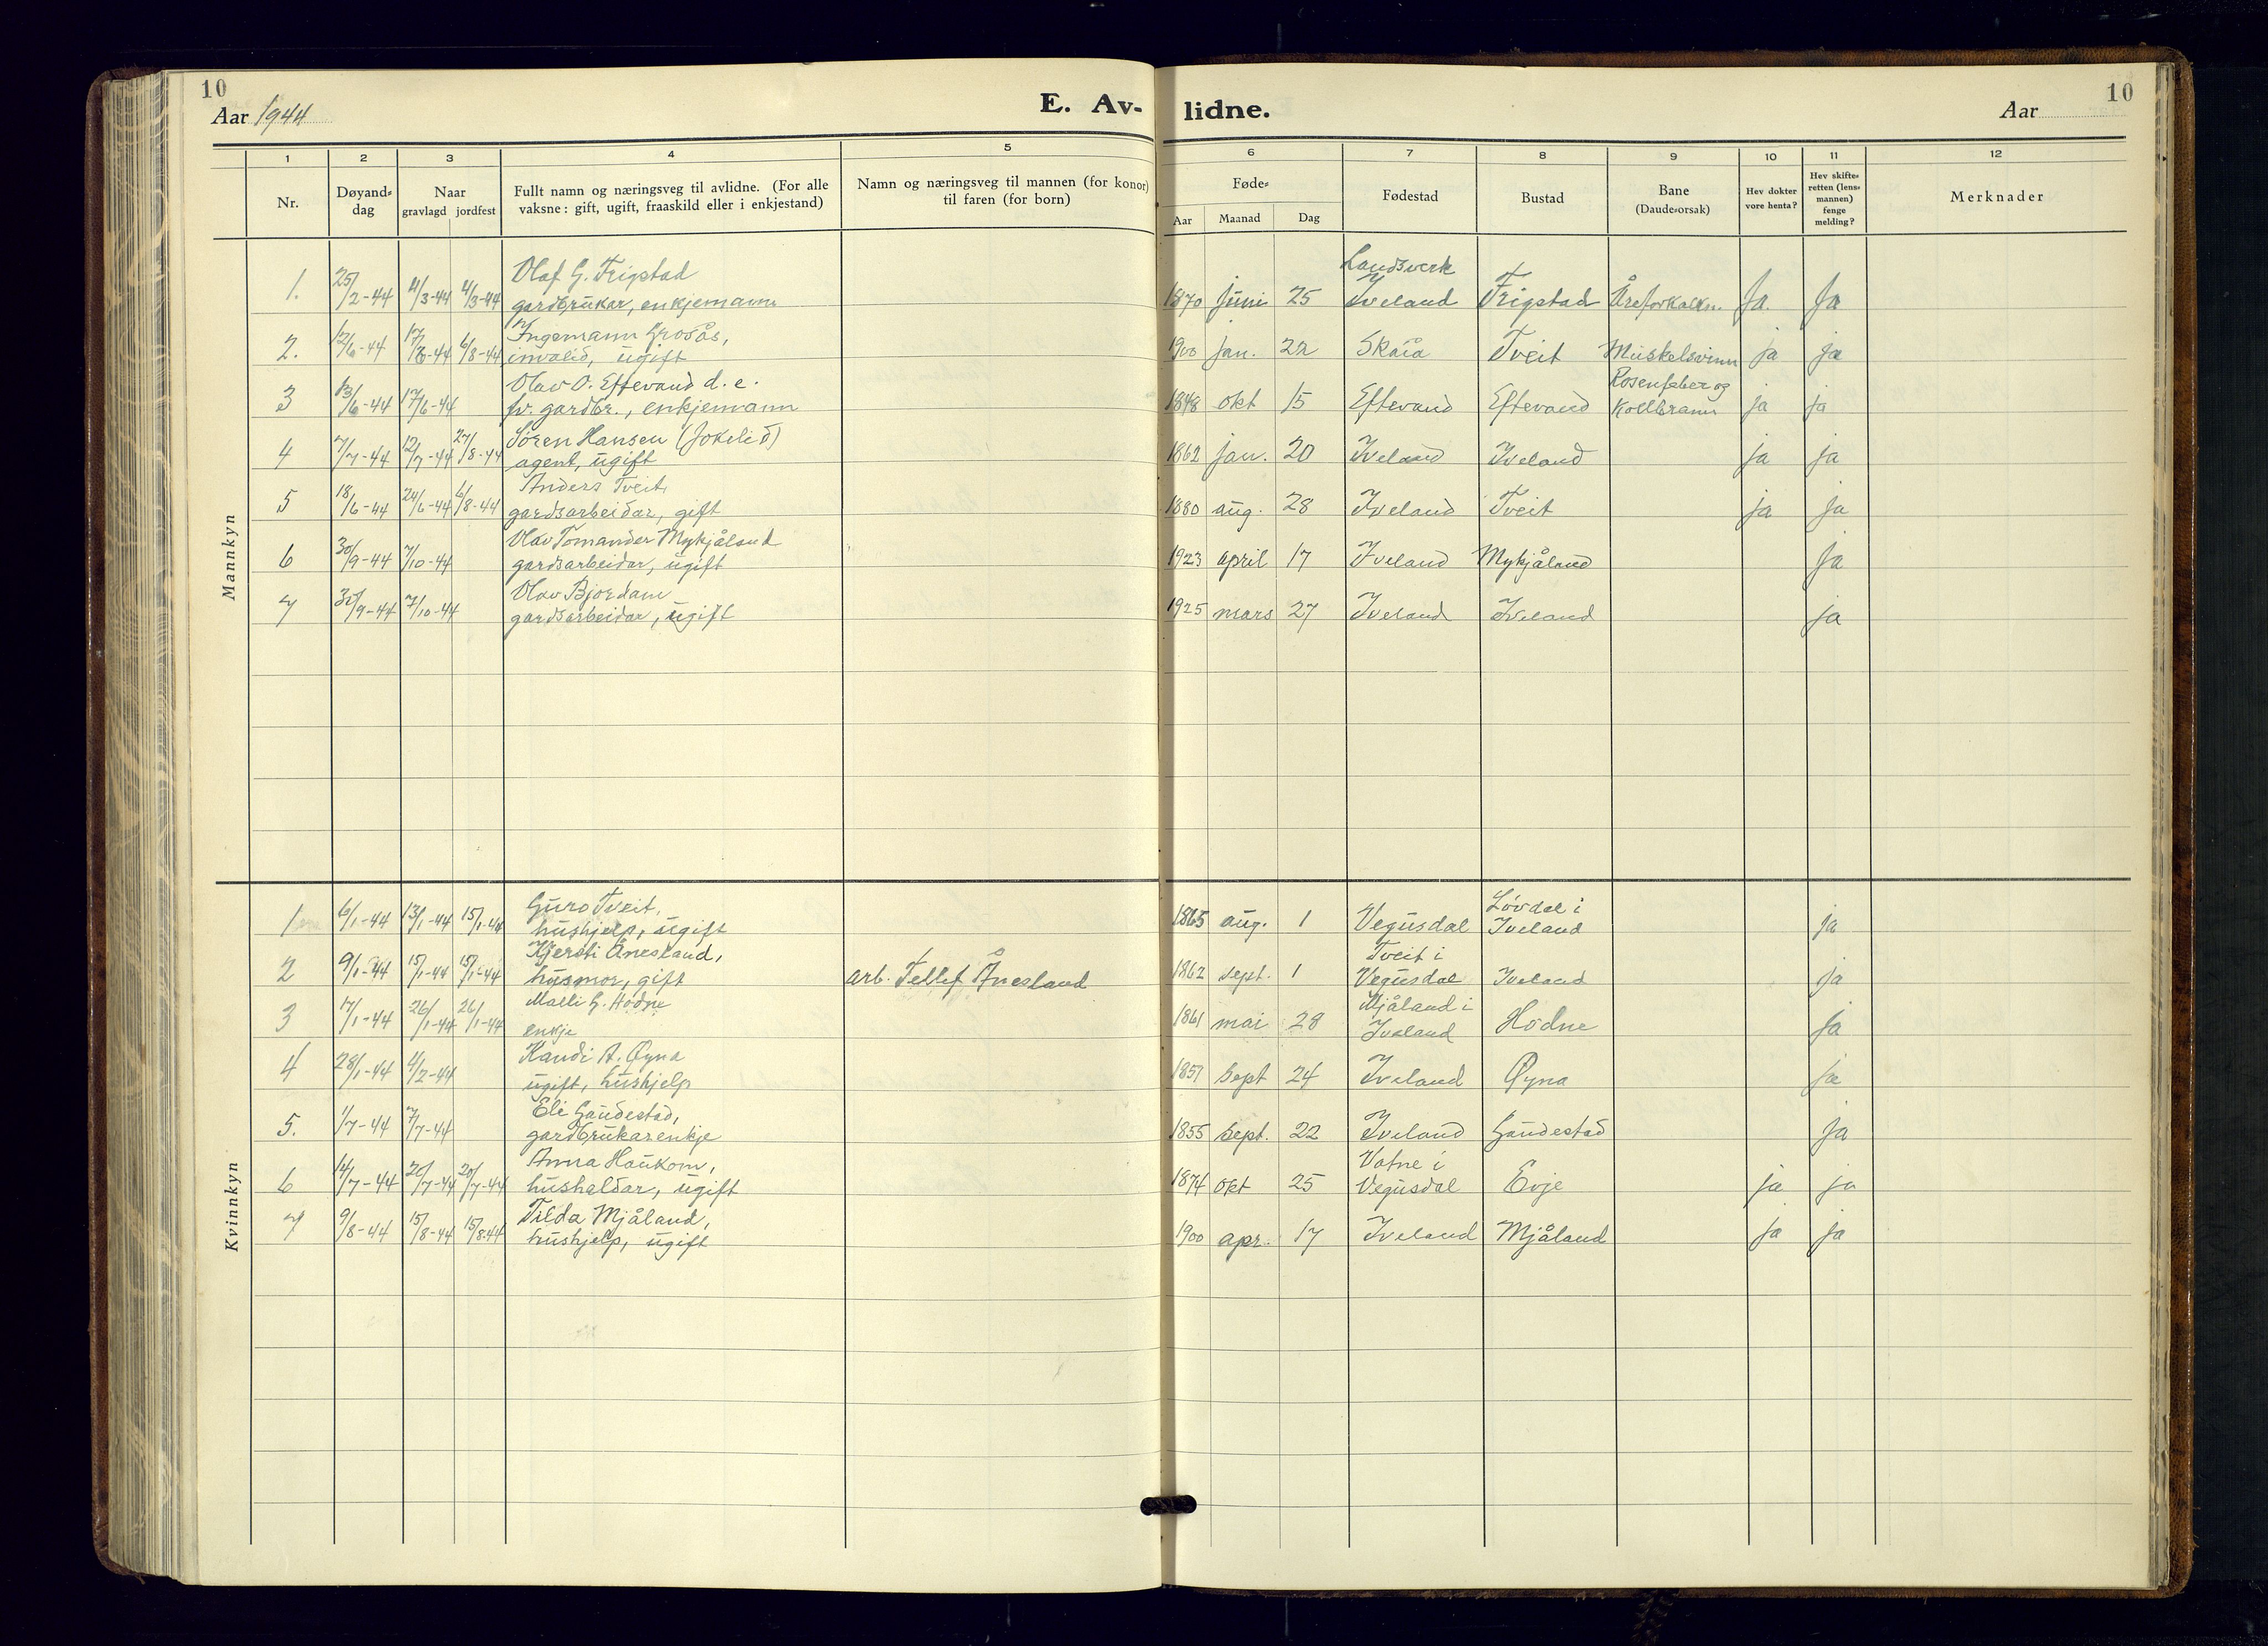 10
Aar 1944
E. Av-
lidne.
Aar
10
1 2 3 4 5 6 7 8 9 10 11 12
Nr.
Døyand-
dag
Naar
gravlagd jordfest
Fullt namn og næringsveg til avlidne. (For alle
vaksne: gift, ugift, fraaskild eller i enkjestand)
Namn og næringsveg til mannen (for konor)
til faren (for born)
Føde-
Aar Maanad Dag
Fødestad
Bustad
Bane
(Daude-orsak)
Hev dokter
vore henta?
Hev skifte-
retten (lens-
mannen)
fenge
melding?
Merknader
Mannkyn
Olaf G. Frigstad Landsverk
1. 25/2-44 4/3-44 4/3-44 gardbrukar, enkjemann 1870 juni 25 Iveland Frigstad Åreforkalkn. Ja. Ja
Ingemann Grosås,
2. 12/6-44 17/6-44 6/8-44 invalid, ugift 1900 jan. 22 Skaia Tveit Muskelsvinn ja ja
Olav O. Eftevand d. e. Rosenfeber og
3 13/6-44 17/6-44 fv. gardbr., enkjemann 1848 okt 15 Eftevand Eftevand Koldbrann ja ja
Søren Hansen (Jokelid)
4 7/7-44 12/7-44 27/8-44 agent, ugift 1862 jan. 20 Iveland Iveland ja ja
Anders Tveit,
5 18/6-44 24/6-44 6/8-44 gardsarbeidar, gift 1880 aug. 28 Iveland Tveit ja ja
Olav Tomander Mykjåland
6 30/9-44 7/10-44 gardsarbeidar, ugift 1923 april 17 Iveland Mykjåland ja
Olav Bjordam
7 30/9-44 7/10-44 gardsarbeidar, ugift 1925 mars 27 Iveland Iveland ja
Kvinnkyn
Guro Tveit, Løvdal i
1 6/1-44 13/1-44 15/1-44 hushjelp, ugift 1865 aug. 1 Vegusdal Iveland ja
Kjersti Ånesland, Tveit i
2 9/1-44 15/1-44 15/1-44 husmor, gift arb. Tellef Ånesland 1862 sept. 1 Vegusdal Iveland ja
Malli G. Hodne Mjåland i
3 17/1-44 26/1-44 26/1-44 enkje 1861 mai 28 Iveland Hodne ja
Kandi A. Øyna
4 28/1-44 4/2-44 ugift, hushjelp 1857 sept 24 Iveland Øyna ja
Eli Gaudestad,
5. 1/7-44 7/7-44 gardbrukarenkje 1855 sept. 22 Iveland Gaudestad ja
Anna Haukom, Vatne i
6 14/7-44 20/7-44 20/7-44 hushaldar, ugift 1874 okt 25 Vegusdal Evje ja ja
Tilda Mjåland,
7 9/8-44 15/8-44 15/8-44 hushjelp, ugift 1900 apr. 17 Iveland Mjåland ja ja